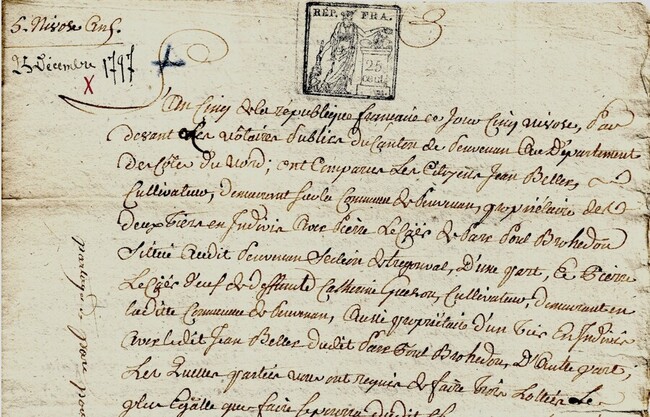 5. Nivose an 6.
25 décembre 1797
X
REP. FRA.
25
cent.
An Cinq de la république française ce jour Cinq nivose, Par
devant les notaires publics du Canton de Penvenan au Département
des Cotes du Nord; ont Comparus Les Citoyens Jean Beller
Cultivateur, demeurant sur la Commune de Penvenan, propriétaire des
deux tiers en Indivis avec Pierre Le de Parc Poul Brohedou
Situé audit Penvenan Section de tregonval, D'une part, et Pierre
Le veuf de deffunte Catherine Cultivateur, demeurant en
laditte Commune de Penvenan, Aussi propriétaire d'un tiers En Indivis
avec ledit Jean Beller dudit Parc Poul Brohedou, D'autre part;
Les quelles parties nous ont requis de faire trois Lotties Le
plus Egalle que faire
partages pour